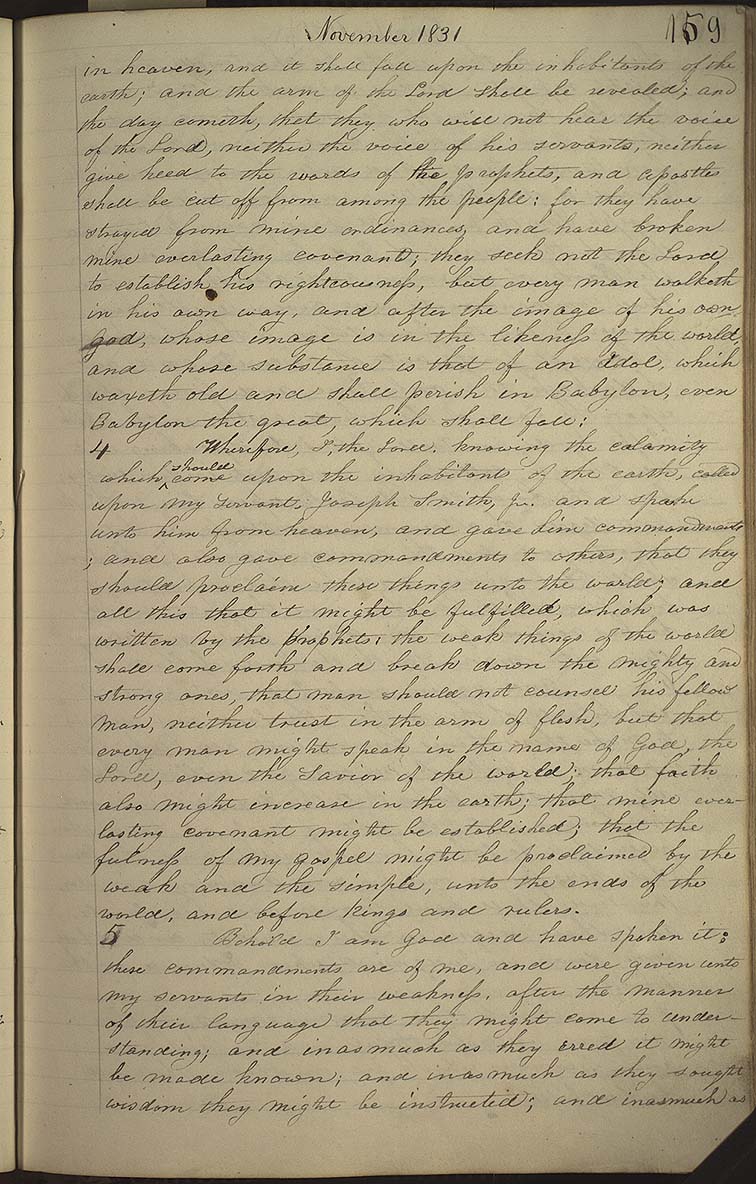 November 1831
159
in heaven, and it shall fall upon the inhabitants of the
earth; and the arm of the Lord shall be revealed; and
the day cometh, that they who will not hear the voice
of the Lord, neither the voice of his servants, neither
give heed to the words of the prophets, and apostles
shall be cut off from among the people: for they have
strayed from mine ordinances, and have broken
mine everlasting covenant; they seek not the Lord
to establish his righteousness, but every man walketh
in his own way, and after the image of his own
god, whose image is in the likeness of the world,
and whose substance is that of an idol, which
waxeth old and shall perish in Babylon, even
Babylon the great, which shall fall:
4 Wherefore, I, the Lord, knowing the calamity
which should come upon the inhabitants of the earth, called
upon my servant, Joseph Smith, Jr. and spake
unto him from heaven, and gave him commandments
; and also gave commandments to others, that they
should proclaim these things unto the world; and
all this that it might be fulfilled, which was
written by the prophets; the weak things of the world
shall come forth and break down the mighty and
strong ones, that man should not counsel his fellow
man, neither trust in the arm of flesh, but that
every man might speak in the name of God, the
Lord, even the Savior of the world; that faith
also might increase in the earth; that mine ever-
lasting covenant might be established; that the
fulness of my gospel might be proclaimed by the
weak and the simple, unto the ends of the
world, and before kings and rulers.
5 Behold I am God and have spoken it;
these commandments are of me, and were given unto
my servants in their weakness, after the manner
of their language that they might come to under-
standing; and inasmuch as they erred it might
be made known; and inasmuch as they sought
wisdom they might be instructed; and inasmuch as